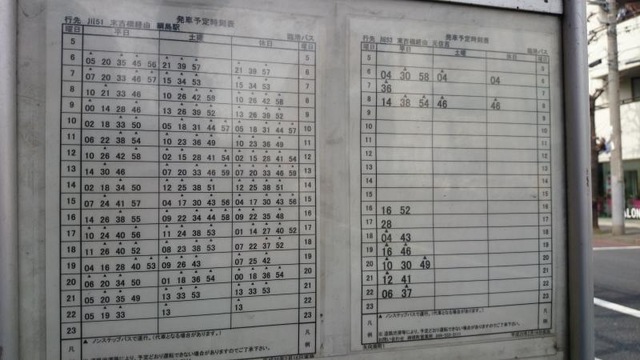 発車予定時刻表
行先 川51 末吉橋経由 綱島駅 臨港バス
曜日 平日 土曜 休日 曜日
5 5
6 05 20 35 45 56 21 39 57 21 39 57 6
7 07 20 33 46 57 15 34 53 15 34 53 7
8 10 21 33 46 10 26 42 58 10 26 42 58 8
9 00 14 28 46 13 26 39 52 13 26 39 52 9
10 02 18 33 50 05 18 31 44 57 05 18 31 44 57 10
11 06 22 38 54 10 23 36 49 10 23 36 49 11
12 10 26 42 58 02 15 28 41 54 02 15 28 41 54 12
13 14 30 46 07 20 33 46 59 07 20 33 46 59 13
14 02 18 34 50 12 25 38 51 12 25 38 51 14
15 07 24 41 57 04 17 30 43 56 04 17 30 43 56 15
16 14 26 38 55 09 22 34 44 58 09 22 35 48 16
17 10 24 40 56 11 24 38 53 01 14 27 40 52 17
18 11 26 40 52 08 23 38 53 07 22 37 52 18
19 04 16 28 40 53 09 26 43 07 25 42 19
20 06 20 34 50 01 18 36 54 00 18 36 54 20
21 05 20 35 49 13 33 53 13 33 53 21
22 05 19 33 13 13 22
23 23
凡例 ▲ノンステップバスで運行。(代車となる場合があります。) 凡例
発車予定時刻表
行先 川53 末吉橋経由 臨港バス
曜日 平日 土曜 休日 曜日
5 5
6 04 30 58 04 04 6
7 36 7
8 14 38 54 46 46 8
9 9
10 10
11 11
12 12
13 13
14 14
15 15
16 16 52 16
17 28 17
18 04 43 18
19 16 46 19
20 10 30 49 20
21 12 41 21
22 06 37 22
23 23
凡例 ▲ノンステップバスで運行。(代車となる場合があります。) 凡例